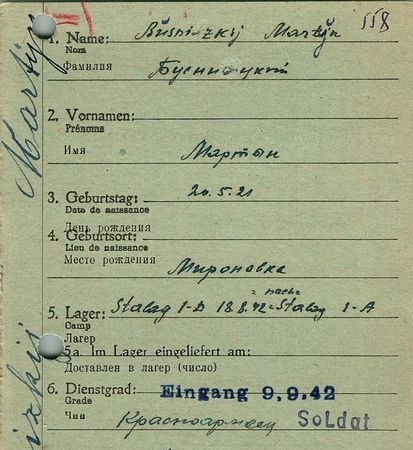 558
1. Name: Büsnizkij Martyn
Nom
Фамилия Бусницкий
2. Vornamen:
Prénoms
Имя Мартын
3. Geburtstag: 20.5.21
Date de naissance
День рождения
4. Geburtsort:
Lieu de naissance
Место рождения
Мироновка
nach
5. Lager: Stalag I-D 18.8.42 Stalag I-A
Camp
Лагер
5a. Im Lager eingeliefert am:
Доставлен в лагер (число)
6. Dienstgrad: Eingang 9.9.42
Grade
Чин Красноармеец Soldat
Martyn
izkij